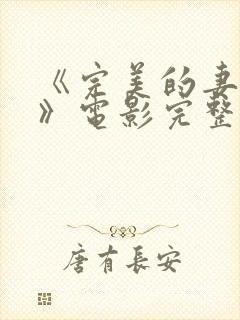 《完美的妻
》电影完整
唐有長安